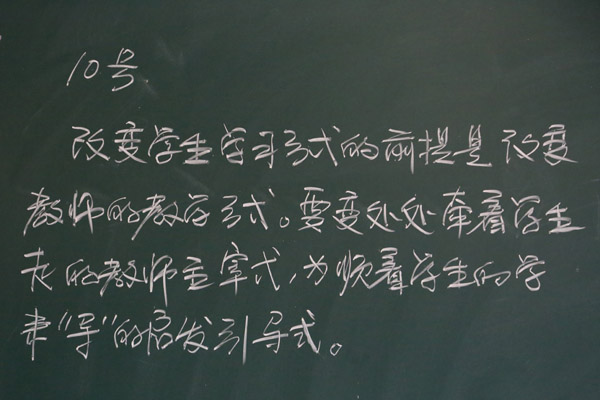 10号
改变学生学习形式的前提是改变
教师的教学形式。要变处处牵着学生
走的教师主宰式，为顺着学生的学
来“导”的启发引导式。